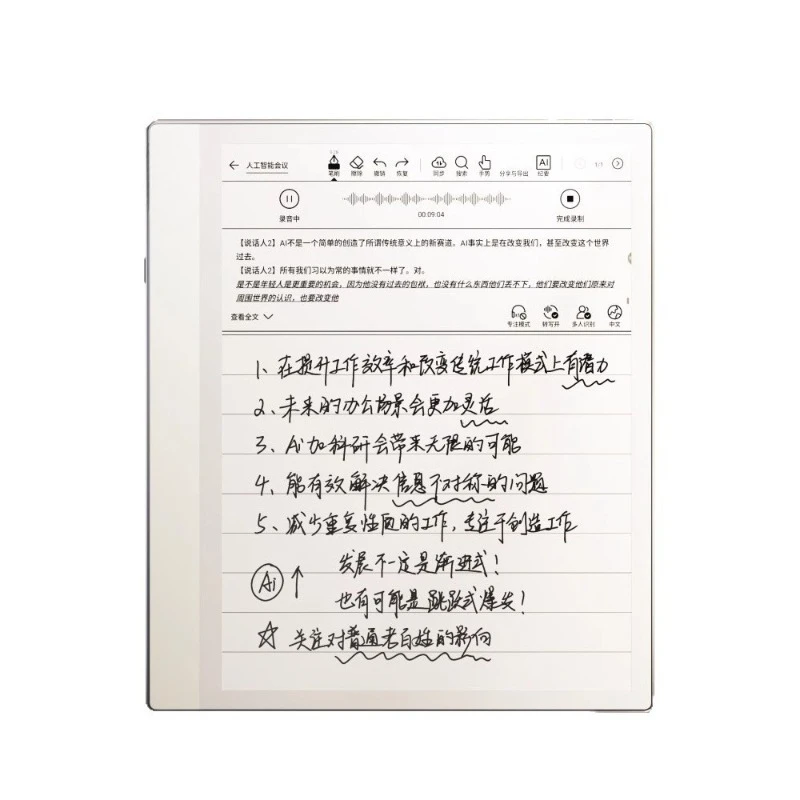 人工智能会议
笔刷 擦除 撤销 恢复 同步 搜索 手势 分享与导出 AI 纪要 1/1
录音中 00:09:04 完成录制
【说话人2】AI不是一个简单的创造了所谓传统意义上的新赛道。AI事实上是在改变我们，甚至改变这个世界
过去。
【说话人2】所有我们习以为常的事情就不一样了。对。
是不是年轻人是更重要的机会，因为他没有过去的包袱，也没有什么东西他们丢不下，他们要改变他们原来对
周围世界的认识，也要改变他
查看全文 专注模式 转写开 多人识别 中文
1、在提升工作效率和改变传统工作模式上有潜力
2、未来的办公场景会更加灵活
3、Ai加科研会带来无限的可能
4、能有效解决信息不对称的问题
5、减少重复性的工作，专注于创造工作
发展不一定是渐进式！
Ai ↑
也有可能是跳跃式爆发！
☆ 关注对普通老百姓的影响